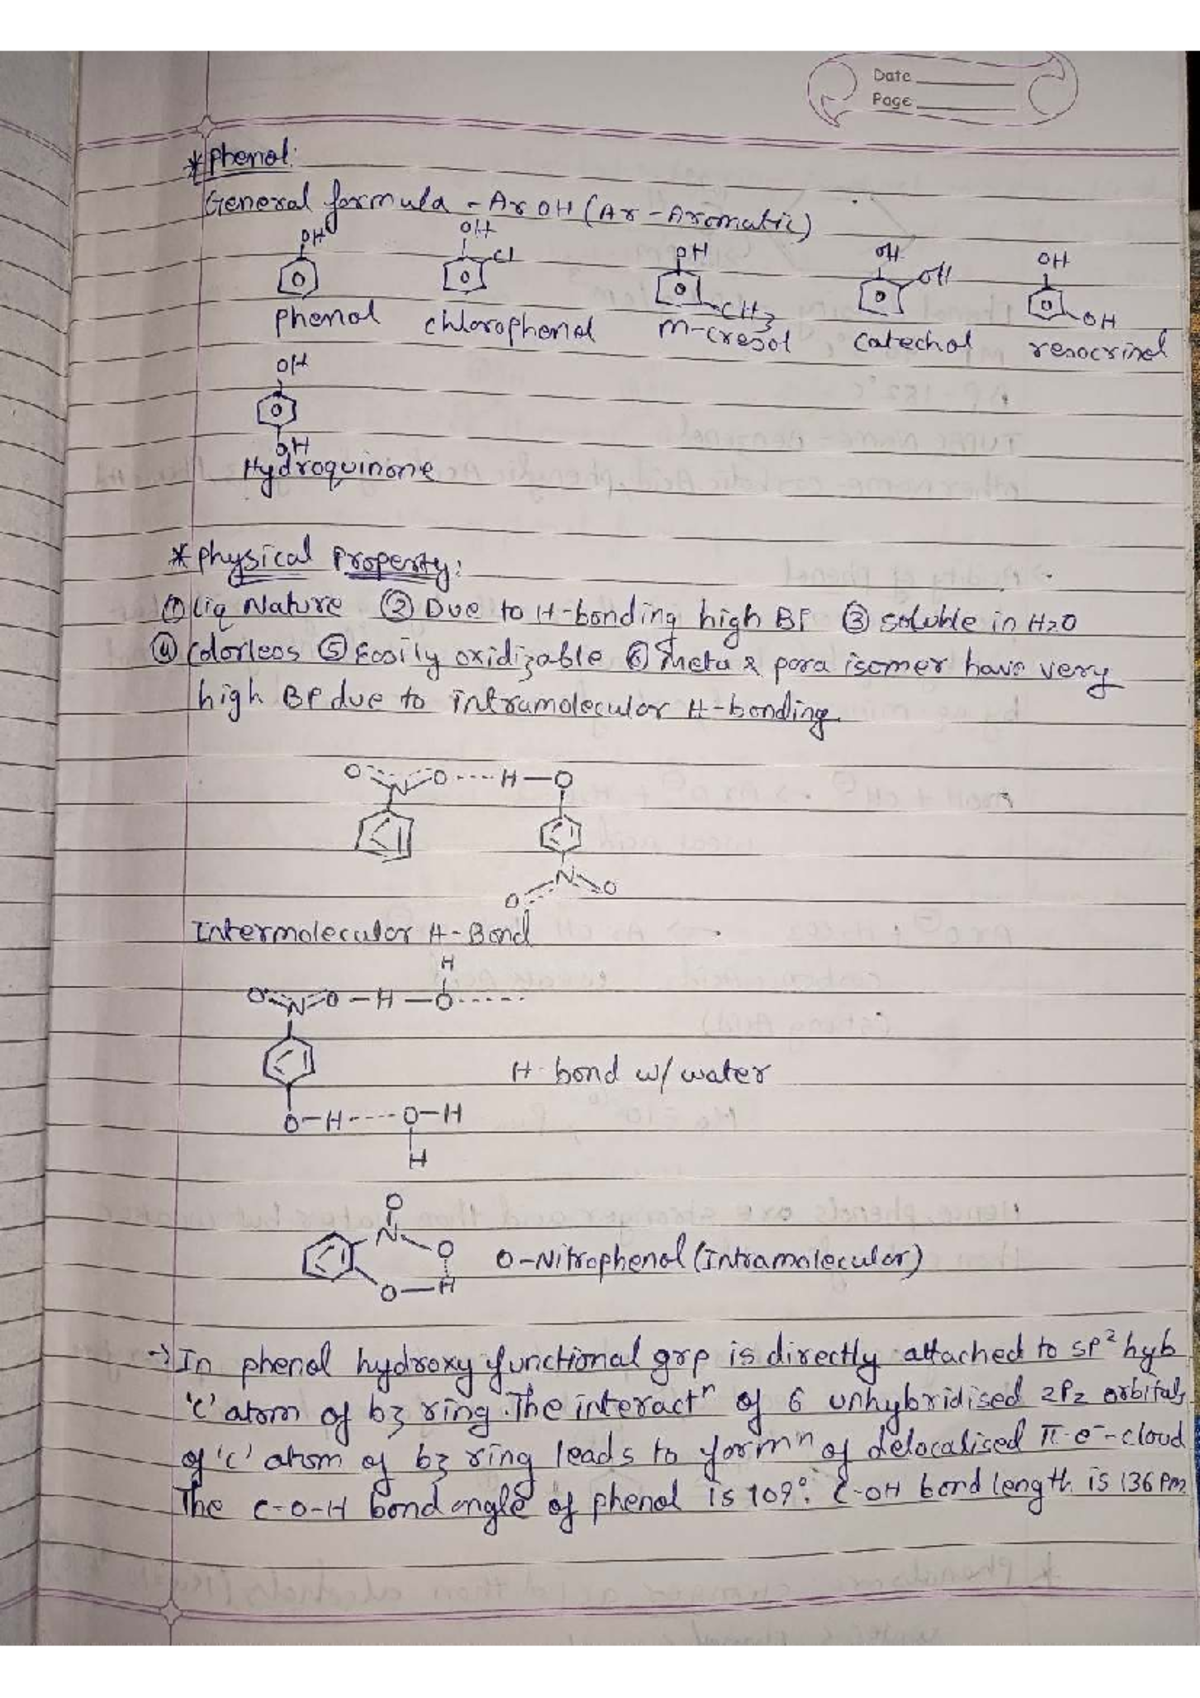 Date
Page
* Phenol:
General formula - Ar OH (Ar - Aromatic)
OH OH Cl OH CH3 OH OH OH OH
phenol chlorophenol m-cresol catechol resocrinol
OH
OH
Hydroquinone
* Physical Property:
① Liq Nature ② Due to H-bonding high BP ③ soluble in H2O
④ Colorless ⑤ Easily oxidizable ⑥ Meta & para isomer have very
high BP due to intramolecular H-bonding.
O N O ---- H — O
N
O O
Intermolecular H-Bond
H
O N O — H — O -----
H-bond w/ water
O—H----O—H
H
O
N
O O-Nitrophenol (Intramolecular)
O—H
→ In phenol hydroxy functional grp is directly attached to sp² hyb
'C' atom of bz ring. The interactⁿ of 6 unhybridised 2Pz orbitals
of 'C' atom of bz ring leads to formⁿ of delocalised π-e⁻-cloud
The C-O-H bond angle of phenol is 109°. C-OH bond length is 136 Pm